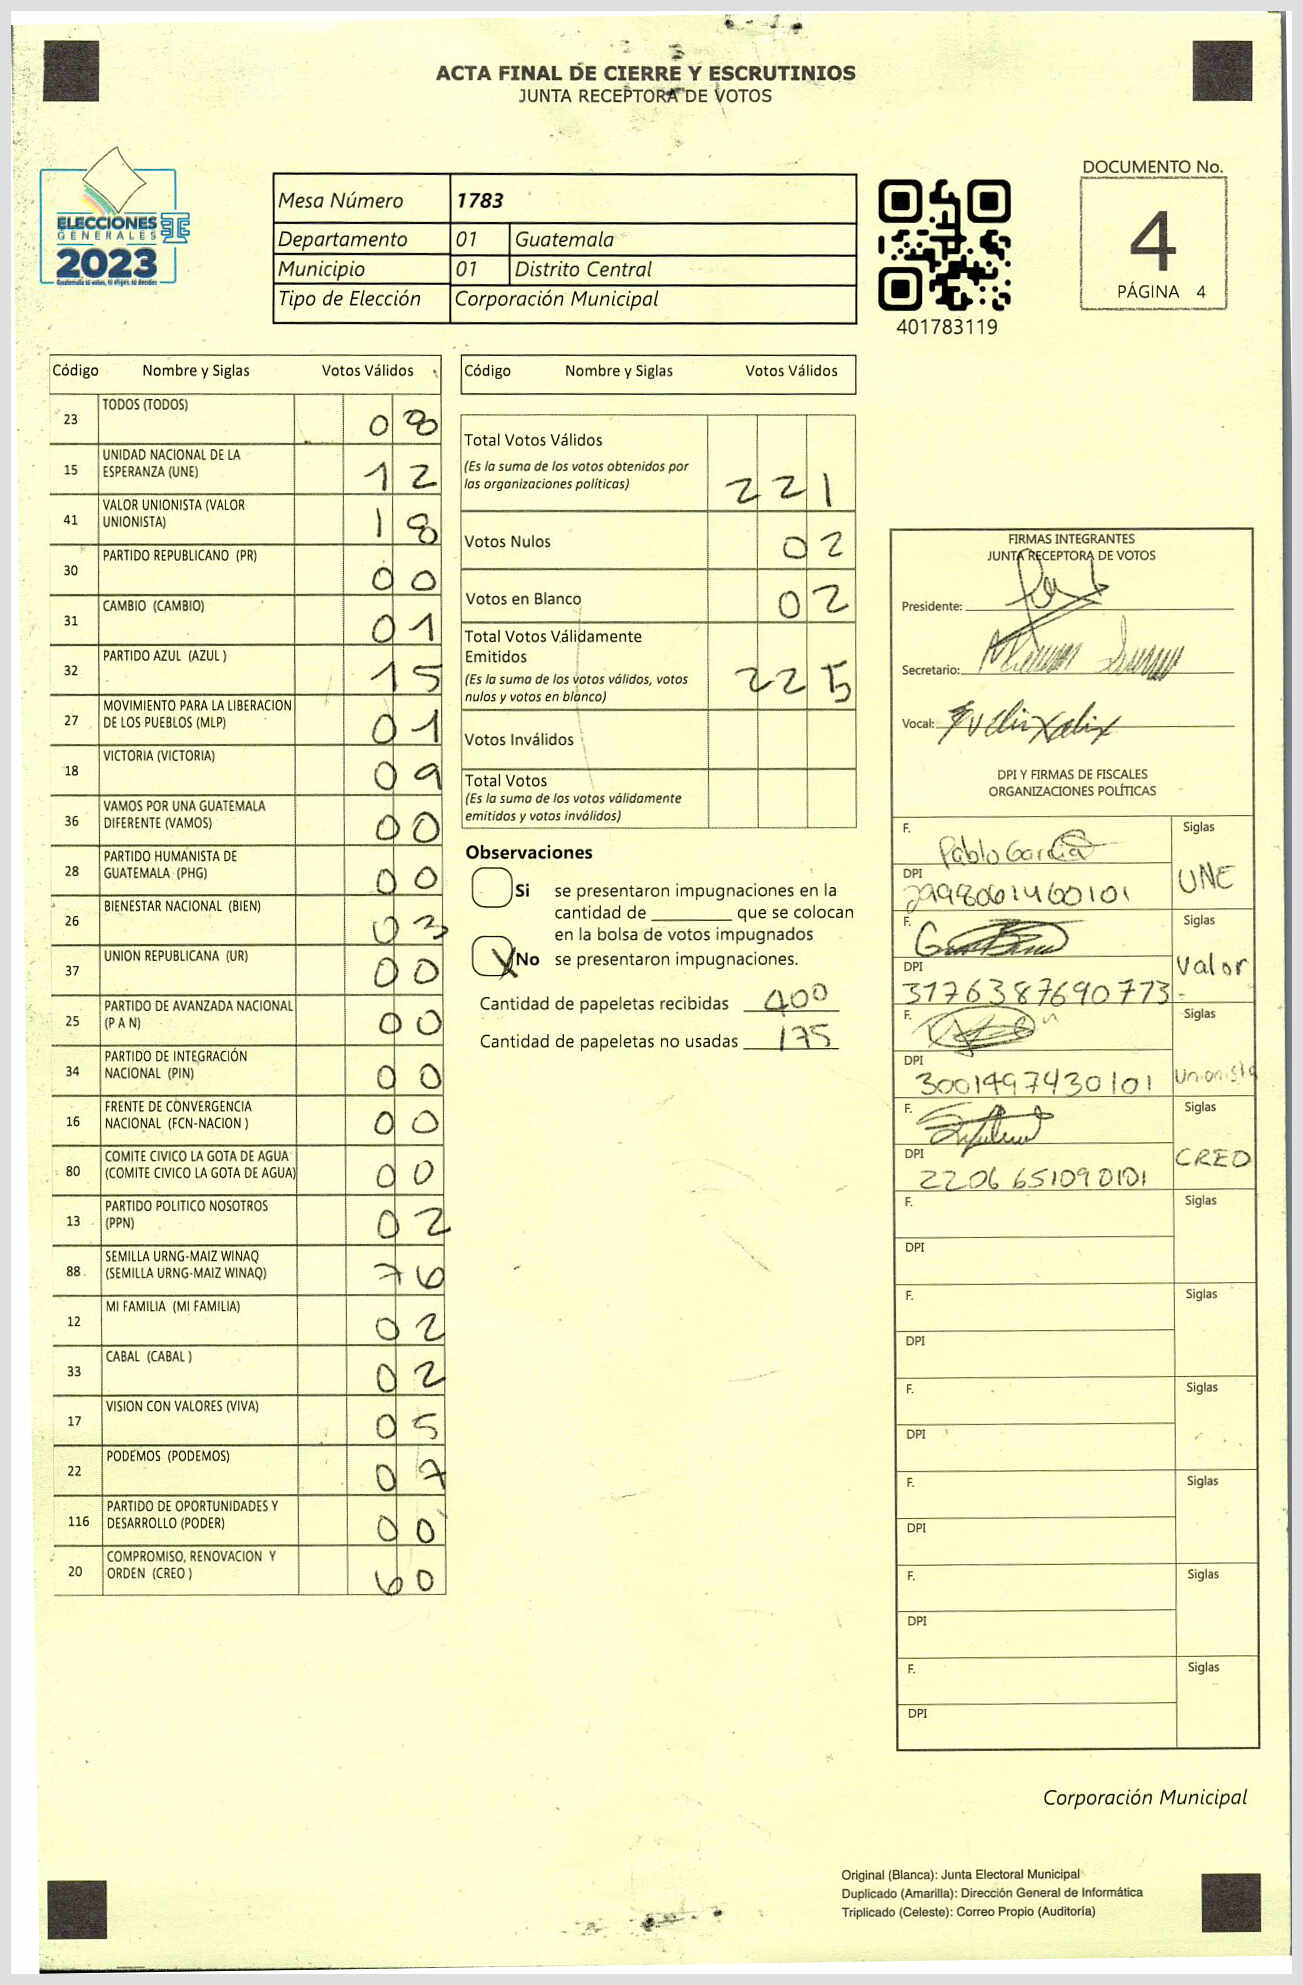 ACTA FINAL DE CIERRE Y ESCRUTINIOS
JUNTA RECEPTORA DE VOTOS
ELECCIONES
GENERALES
2023
Guatemala tú votas, tú eliges, tú decides
Mesa Número 1783
Departamento 01 Guatemala
Municipio 01 Distrito Central
Tipo de Elección Corporación Municipal
401783119
DOCUMENTO No.
4
PÁGINA 4
Código Nombre y Siglas Votos Válidos
23 TODOS (TODOS) 08
15 UNIDAD NACIONAL DE LA
ESPERANZA (UNE) 12
41 VALOR UNIONISTA (VALOR
UNIONISTA) 18
30 PARTIDO REPUBLICANO (PR) 00
31 CAMBIO (CAMBIO) 01
32 PARTIDO AZUL (AZUL ) 15
27 MOVIMIENTO PARA LA LIBERACION
DE LOS PUEBLOS (MLP) 01
18 VICTORIA (VICTORIA) 09
36 VAMOS POR UNA GUATEMALA
DIFERENTE (VAMOS) 00
28 PARTIDO HUMANISTA DE
GUATEMALA (PHG) 00
26 BIENESTAR NACIONAL (BIEN) 03
37 UNION REPUBLICANA (UR) 00
25 PARTIDO DE AVANZADA NACIONAL
(P A N) 00
34 PARTIDO DE INTEGRACIÓN
NACIONAL (PIN) 00
16 FRENTE DE CONVERGENCIA
NACIONAL (FCN-NACION ) 00
80 COMITE CIVICO LA GOTA DE AGUA
(COMITE CIVICO LA GOTA DE AGUA) 00
13 PARTIDO POLITICO NOSOTROS
(PPN) 02
88 SEMILLA URNG-MAIZ WINAQ
(SEMILLA URNG-MAIZ WINAQ) 76
12 MI FAMILIA (MI FAMILIA) 02
33 CABAL (CABAL ) 02
17 VISION CON VALORES (VIVA) 05
22 PODEMOS (PODEMOS) 07
116 PARTIDO DE OPORTUNIDADES Y
DESARROLLO (PODER) 00
20 COMPROMISO, RENOVACION Y
ORDEN (CREO ) 60
Código Nombre y Siglas Votos Válidos
Total Votos Válidos
(Es la suma de los votos obtenidos por
las organizaciones políticas) 221
Votos Nulos 02
Votos en Blanco 02
Total Votos Válidamente
Emitidos
(Es la suma de los votos válidos, votos
nulos y votos en blanco) 225
Votos Inválidos
Total Votos
(Es la suma de los votos válidamente
emitidos y votos inválidos)
Observaciones
Si se presentaron impugnaciones en la
cantidad de ________ que se colocan
en la bolsa de votos impugnados
X No se presentaron impugnaciones.
Cantidad de papeletas recibidas 400
Cantidad de papeletas no usadas 175
FIRMAS INTEGRANTES
JUNTA RECEPTORA DE VOTOS
Presidente:
Secretario:
Vocal:
DPI Y FIRMAS DE FISCALES
ORGANIZACIONES POLÍTICAS
F. Pablo García Siglas
DPI UNE
2998061460101
F. Siglas
DPI Valor
3176387690773
F. Siglas
DPI Unionista
3001497430101
F. Siglas
DPI CREO
2206651090101
F. Siglas
DPI
F. Siglas
DPI
F. Siglas
DPI
F. Siglas
DPI
F. Siglas
DPI
F. Siglas
DPI
Corporación Municipal
Original (Blanca): Junta Electoral Municipal
Duplicado (Amarilla): Dirección General de Informática
Triplicado (Celeste): Correo Propio (Auditoría)